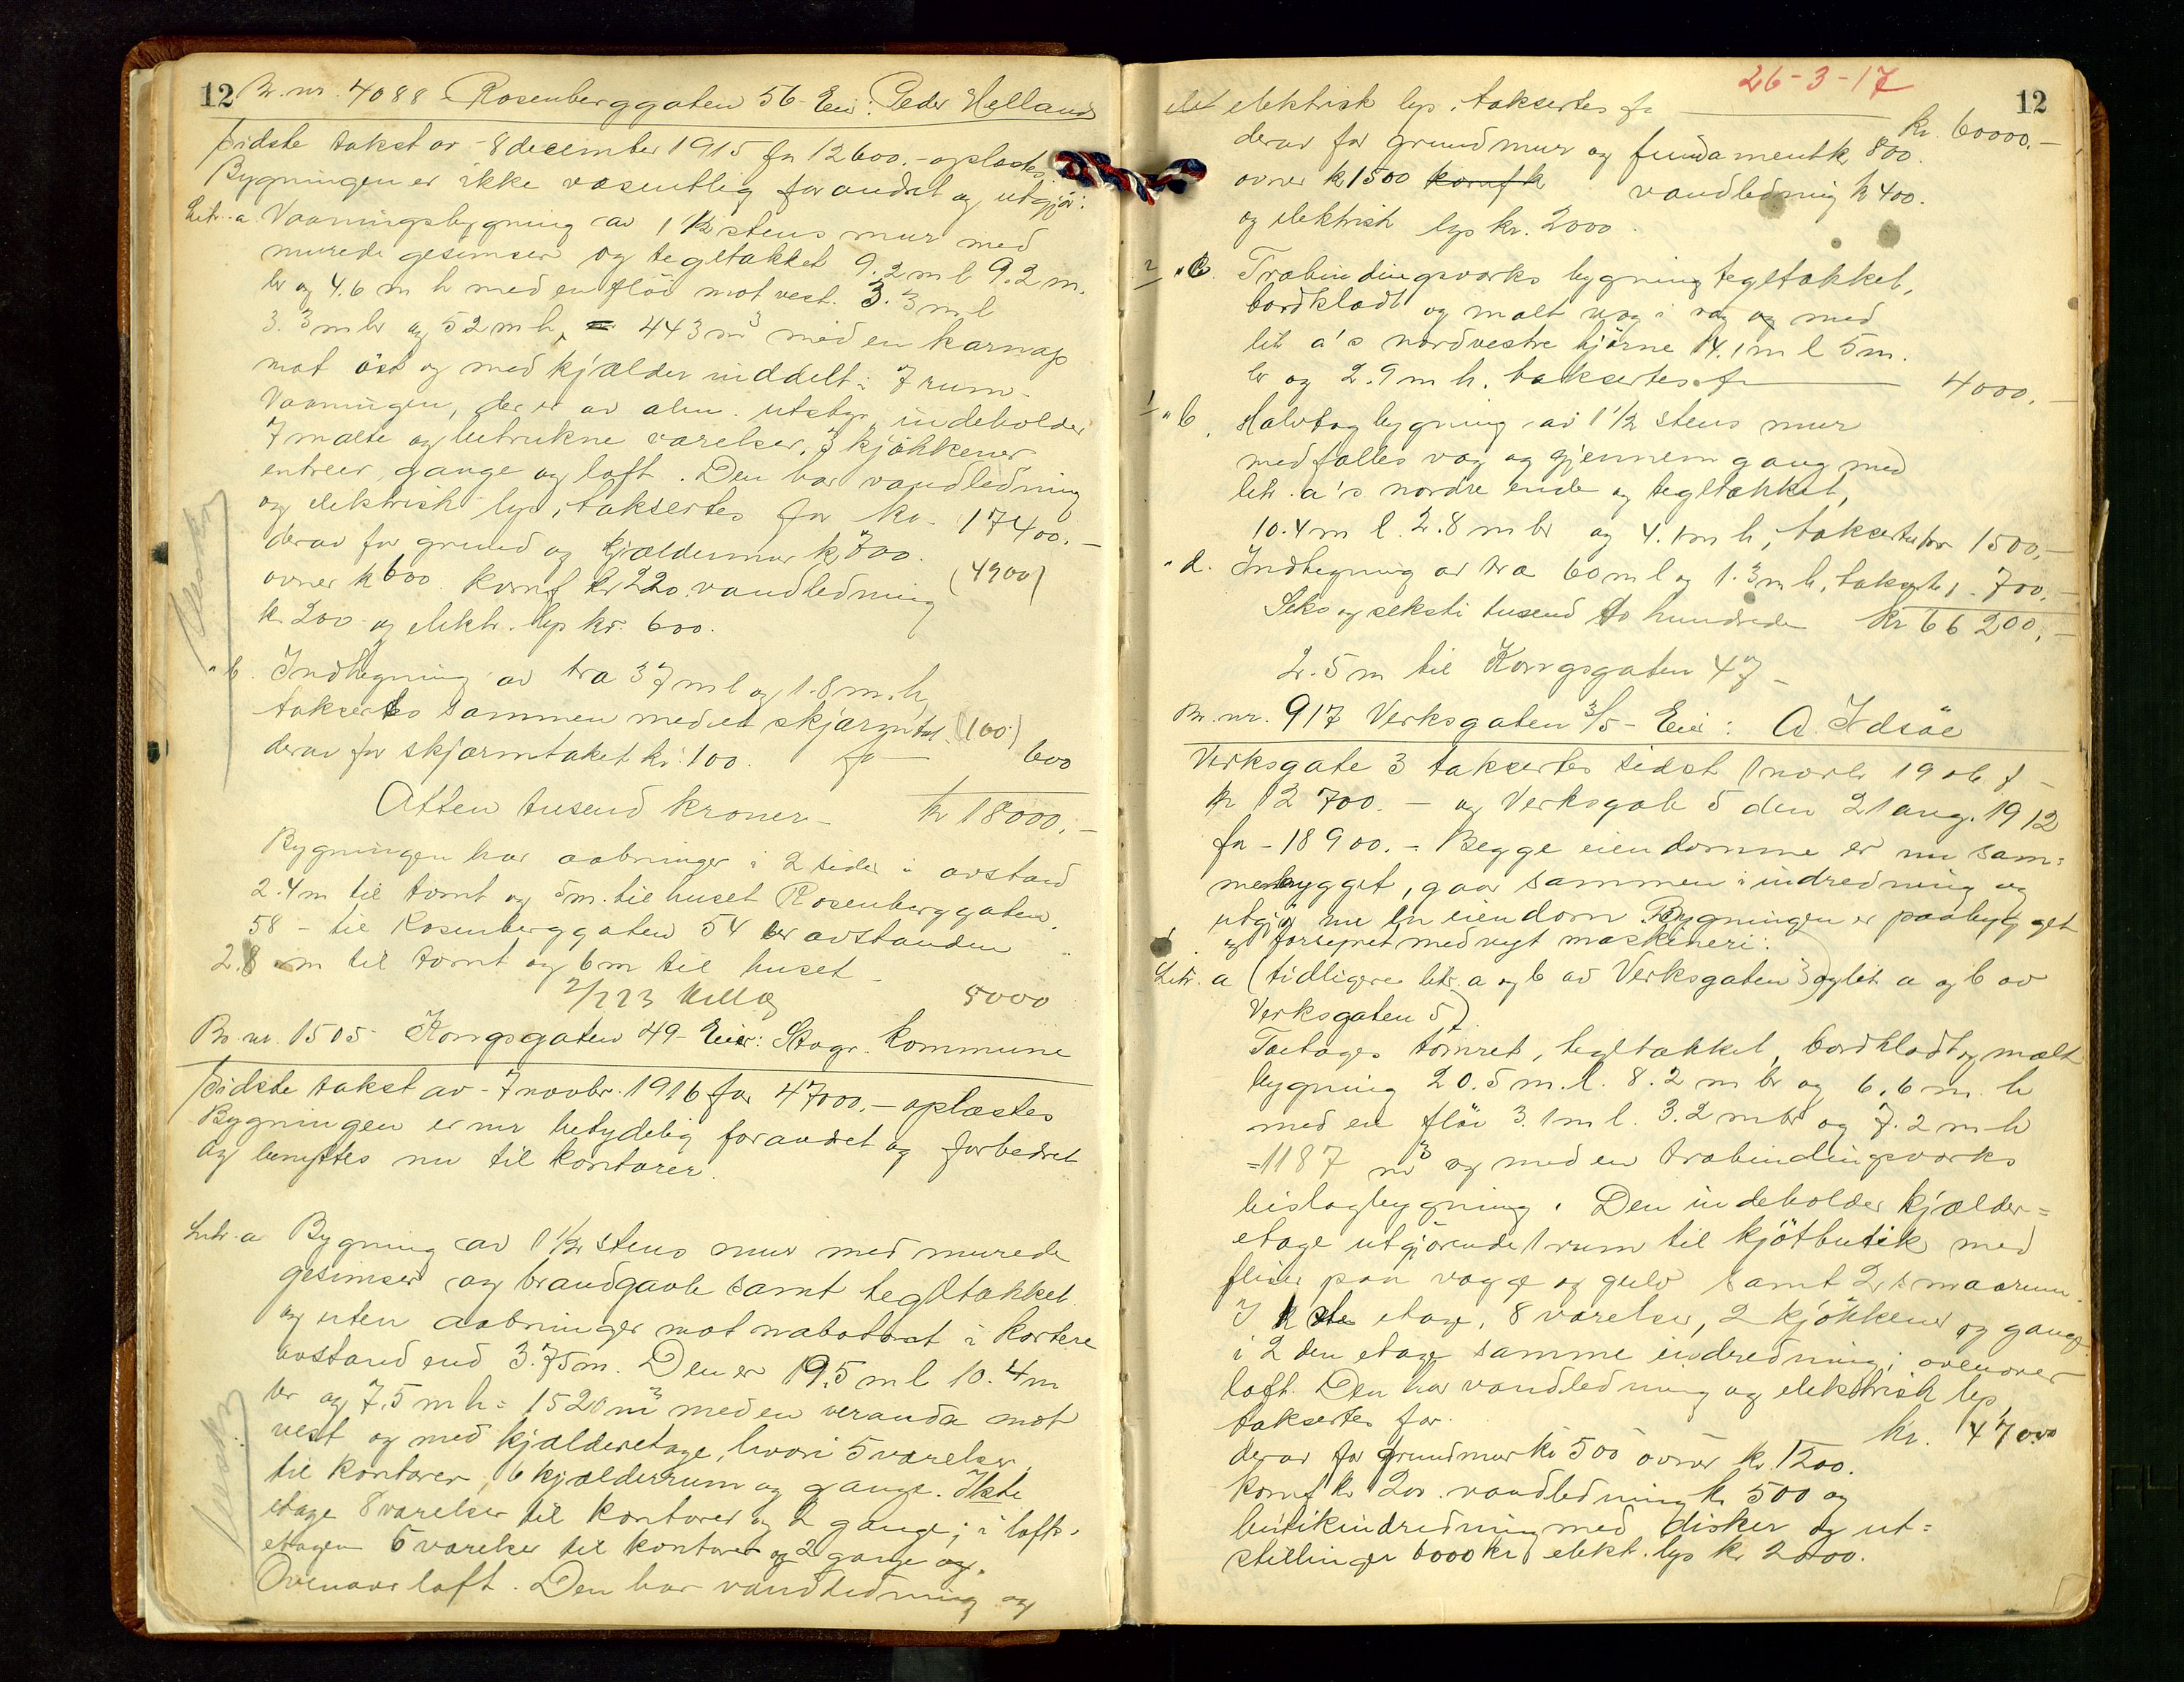 12 Br. nr. 4088 Rosenberggaten 56 - Eier: Peder Helland
Sidste takst av - 8 december 1915 for 12600.- oplæstes.
Bygningen er ikke væsentlig forandret og utgjør:
Litr. a Vaaningsbygning av 1 1/2 stens mur med
murede gesimser og tegltækket 9.2 m l 9.2 m.
br og 4.6 m h med en fløi mot vest. 3.3 m l
3.3 m br og 5.2 m h, = 443 m3 med en karnap
mot øst og med kjælder inddelt i 7 rum.
Vaaningen, der er av alm. utstyr, indeholder
7 malte og betrukne værelser, 3 kjøkkener
entreer, gange og loft. Den har vandledning
og elektrisk lys, taksertes for kr. 17400.-
derav for grund og kjældermur kr 700.
ovner kr 600 komf kr 220. vandledning (4900)
kr. 200 og elektr. lys kr. 600.
" b. Indhegning av træ 37 m l og 1.8 m. h,
taksertes sammen med et skjærmtak (100)
derav for skjærmtaket kr: 100. for — 600
Atten tusend kroner - kr 18000.-
Bygningen har aabninger i 2 sider i avstand
2.4 m til tomt og 5 m. til huset Rosenberggaten
58 - til Rosenberggaten 54 er avstanden
2.8 m til tomt og 6 m til huset -
5000
Br. nr. 1505 Kongsgaten 49 - Eier: Stvgr. Kommune
Sidste takst av - 7 novbr. 1916 for 47000.- oplæstes
Bygningen er nu betydelig forandret og forbedret
og benyttes nu til kontorer.
Litr. a Bygning av 1 1/2 stens mur med murede
gesimser og brandgavle samt tegltækket
og uten aabninger mot nabotomt i kortere
avstand end 3.75 m. Den er 19.5 m l 10.4 m
br og 7.5 m h = 1520 m3 med en veranda mot
vest og med kjælderetage, hvori 5 værelser
til kontorer, 6 kjælderrum og gange. I 1ste
etage 8 værelser til kontorer og 2 gange; i lofts-
etagen 6 værelser til kontorer og 2 gange og.
Ovenover loft. Den har vandledning og
26-3-17
12
elektrisk lys, taksertes for — kr. 60000.-
derav for grundmur og fundament kr, 800.
ovner kr 1500 komf kr vandledning kr 400.
og elektrisk lys kr. 2000.
2 " c. Træbindingsverks bygning tegltækket,
bordklædt og malt uog i væg og med
litr a's nordvestre hjørne 14.1 m l 5 m.
br og 2.9 m h. taksertes for — 4000.-
1 " b. Halvtagbygning av 1 1/2 stens mur
med fælles væg og gjennemgang med
litr. a's nordre ende og tegltækket,
10.4 m l 2.8 m br og 4.1 m h, taksertes for 1500.-
" d. Indhegning av træ 60 m l og 1.3 m h, takserts - 700.-
Seks og seksti tusend to hundrede kr 66200.-
2.5 m til Kongsgaten 47 -
Br. nr. 917 Verksgaten 3/5 - Eier: A Idsøe
Verksgate 3 taksertes sidst 1 novbr 1906 f -
kr 12700.- og Verksgate 5 den 21 aug. 1912
for - 18900.- Begge eiendomme er nu sam=
menbygget, gaar sammen i indredning og
utgjør nu en eiendom Bygningen er paabygget
og forsynet med nyt maskineri:
Litr. a (tidligere litr. a og b av Verksgaten 3) og litr a og b av
Verksgaten 5)
Toetages tømret, tegltækket, bordklædt og malt
bygning 20.5 m. l. 8.2 m br og 6.6 m. h
med en fløi 3.1 m l. 3.2 m br og 7.2 m h
= 1187 m3 og med en træbindingsverks
bislagbygning. Den indeholder kjælder=
etage utgjørende 1 rum til kjøtbutik med
fliser paa vægge og gulv samt 2 smaarum.
I 1ste etage, 8 værelser, 2 kjøkkener og gange
i 2den etage samme indredning; ovenover
loft. Den har vandledning og elektrisk lys
taksertes for. kr. 47000
derav for grundmur kr 500 ovner kr. 1200.
Komf kr 200. vandledning kr 500 og
butikindredning med disker og ut=
stillinger 6000 kr elekt. lys kr 2000.